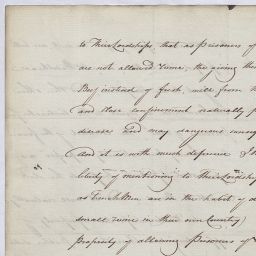 to Their Lordships, that as Prisoners of
are not allowed Wine, the giving them
Beef instead of fresh, will from th
and close confinement naturally p
disease and may dangerous conseq
And it is with much deference I
liberty of mentioning to Their Lordsh
as Frenchmen are in the habit of d
small Wine in their own Country)
propriety of allowing Prisoners of